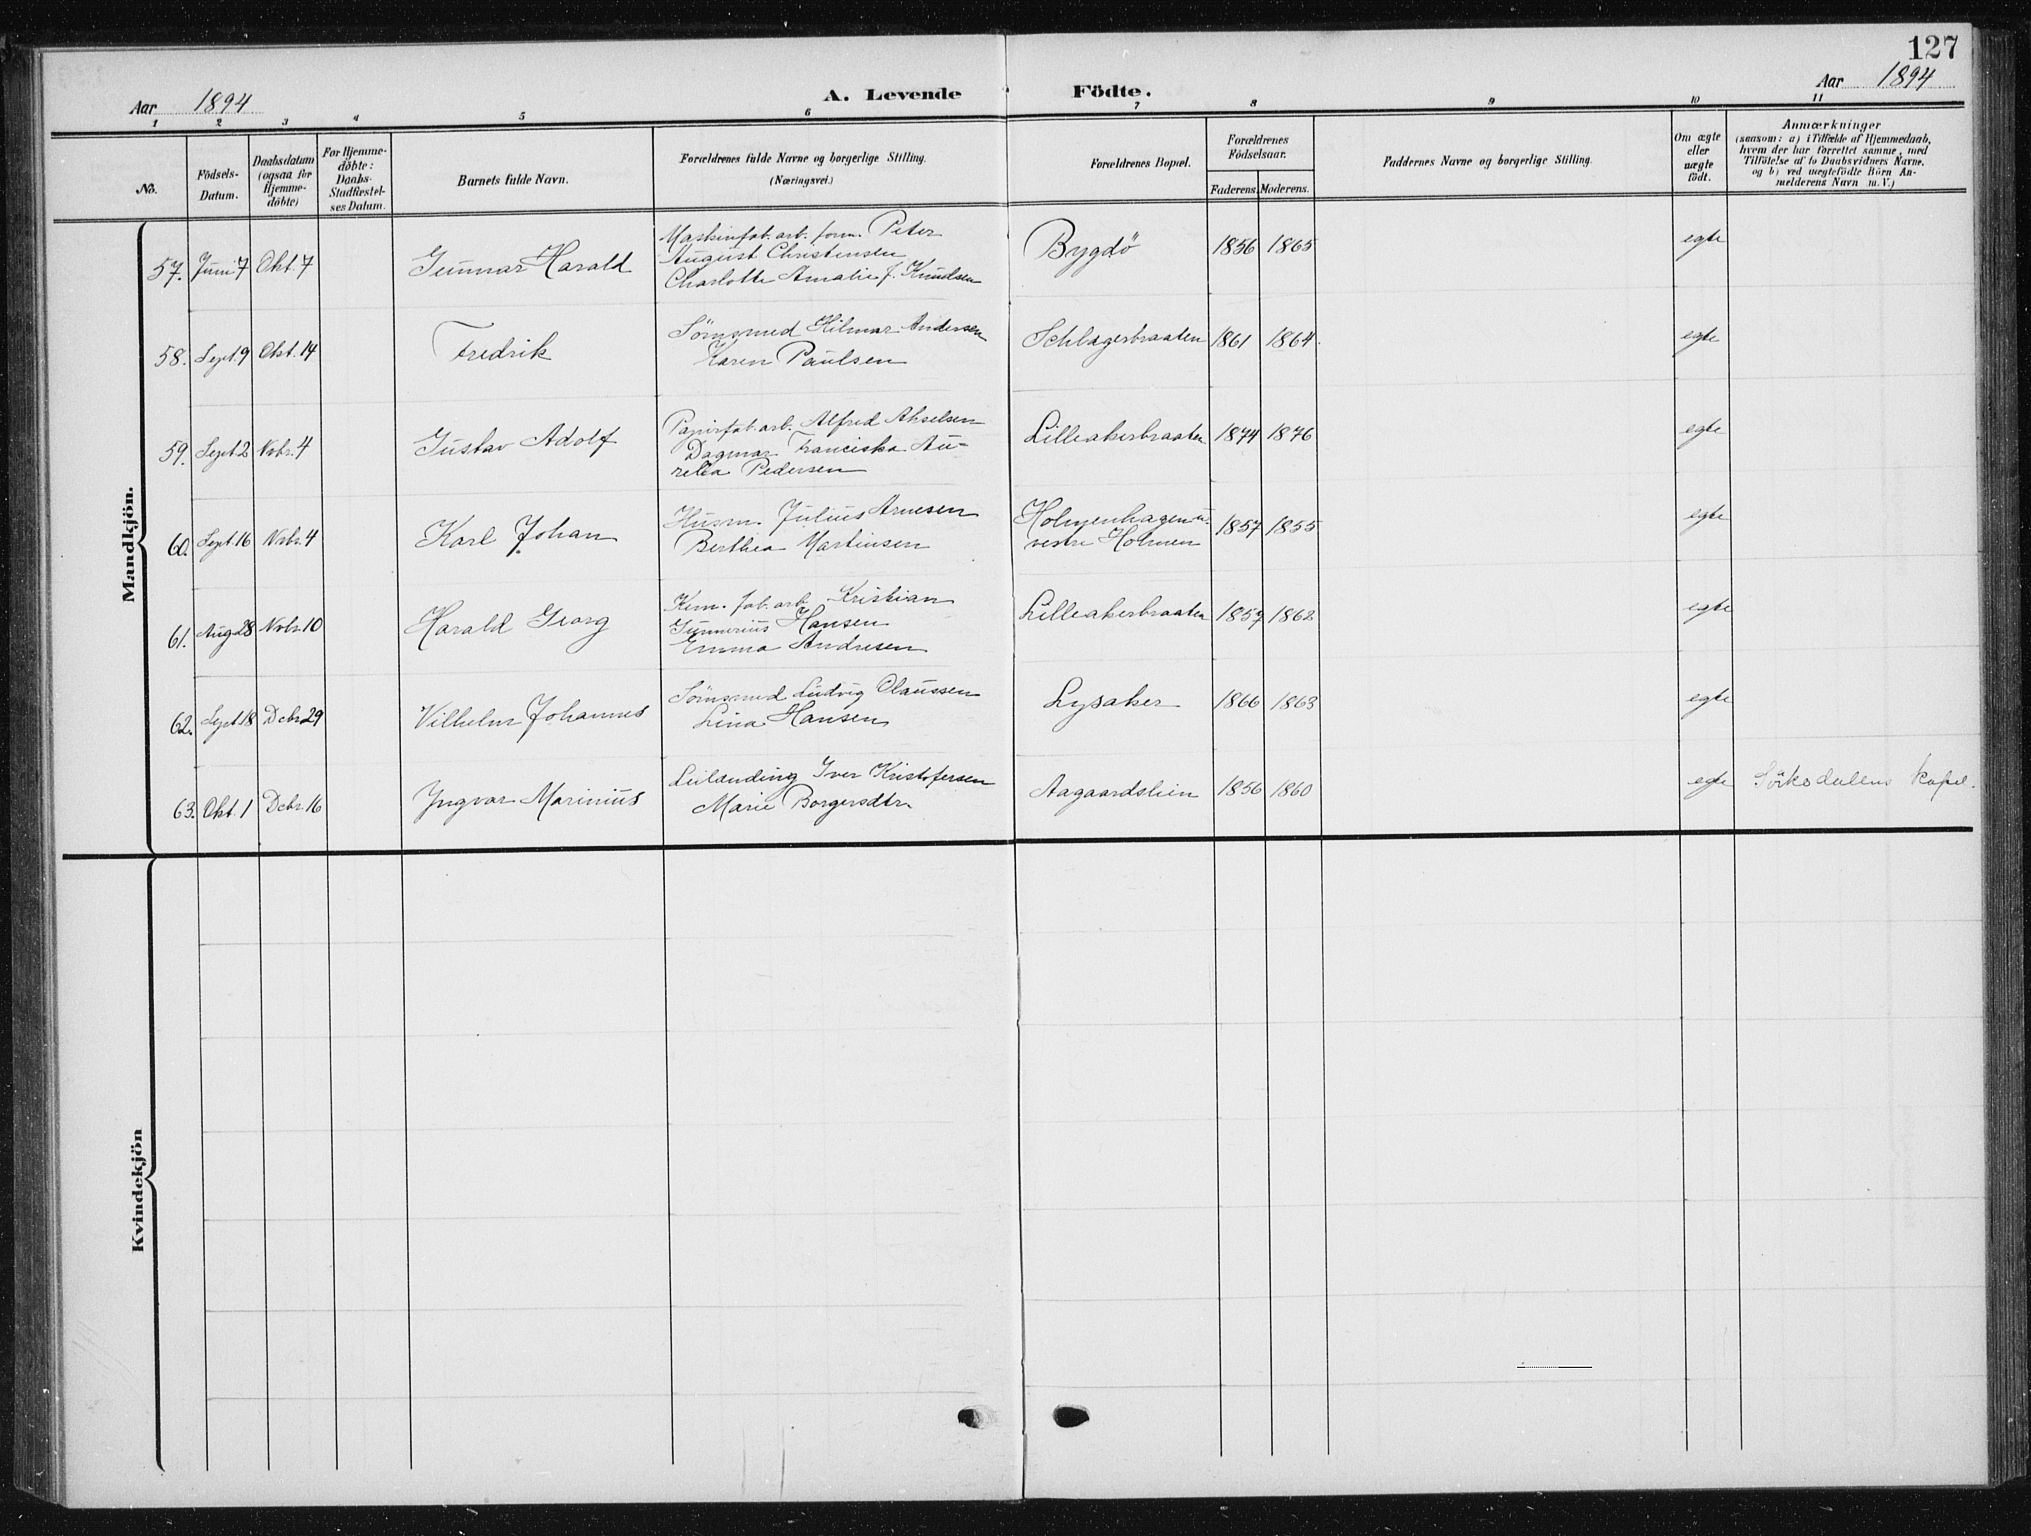 127
Aar 1894
A. Levende Födte.
Aar 1894
1 2 3 4 5 6 7 8 9 10 11
No.
Födsels-
Datum.
Daabsdatum
(ogsaa for
Hjemme-
döbte)
For Hjemme-
döbte:
Daabs-
Stadfæstel-
ses Datum.
Barnets fulde Navn.
Forældrenes fulde Navne og borgerlige Stilling.
(Næringsvei.)
Forældrenes Bopæl.
Forældrenes
Födselsaar.
Faderens. Moderens.
Faddernes Navne og borgerlige Stilling.
Om ægte
eller
uægte
födt.
Anmærkninger
(saasom: a) i Tilfælde af Hjemmedaab,
hvem der har forrettet samme, med
Tilföielse af to Daabsvidners Navne,
og b) ved uægtefödte Börn An-
melderens Navn m. V.)
Mandkjön.
57. Juni 7 Okt. 7 Gunnar Harald
Maskinfab. arb. form. Peter
August Christensen
Charlotte Amalie f. Knudsen
Bygdö 1856 1865 egte
58. Sept. 9 Okt. 14 Fredrik
Sömsmed Hilmar Andersen
Karen Paulsen
Schlagerbraaten 1861 1864. egte
59. Sept. 2 Nvbr. 4 Gustav Adolf
Papirfab. arb. Alfred Akselsen
Dagmar Franciska Au-
relia Pedersen
Lilleakerbraaten 1874 1876 egte
60. Sept. 16 Nvbr. 4 Karl Johan
Husm. Julius Arnesen
Berthea Martinsen
Holmenhagen u.
vestre Holmen
1857 1855 egte
61. Aug. 28 Nvbr. 10 Harald Georg
Kem. fab. arb. Kristian
Gunnerius Hansen
Emma Andresen
Lilleakerbraaten 1857 1862 egte
62. Sept. 18 Debr. 29 Vilhelm Johannes
Sömsmed Ludvig Claussen
Lina Hansen
Lysaker 1866 1863 egte
63. Okt. 1 Debr. 16 Yngvar Marinius
Leilænding Iver Kristofersen
Marie Borgersdtr.
Aagaardsleien 1856 1860 egte Sörkedalens kapel.
Kvindekjön